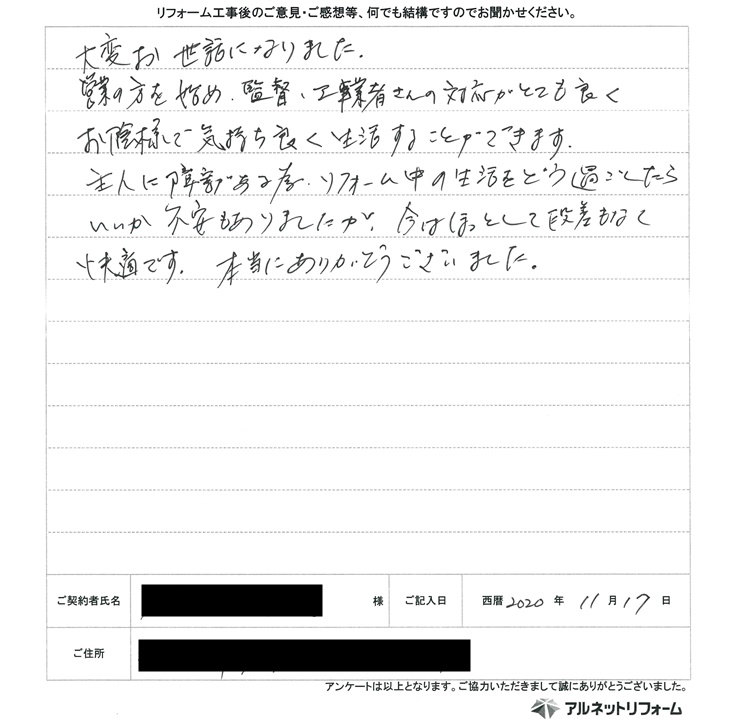 リフォーム工事後のご意見・ご感想等、何でも結構ですのでお聞かせください。
大変お世話になりました.
営業の方を始め、監督、工事業者さんの対応がとても良く
お陰様で気持ち良く生活することができます.
主人に障害がある為、リフォーム中の生活をどう過ごしたら
いいか不安もありましたが、今はほっとして段差もなく
快適です. 本当にありがとうございました。
ご契約者氏名 様 ご記入日 西暦 2020 年 11 月 17 日
ご住所
アンケートは以上となります。ご協力いただきまして誠にありがとうございました。
アルネットリフォーム